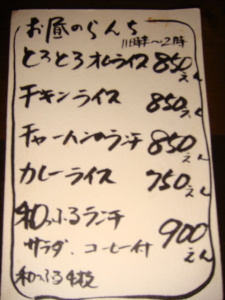 お昼のらんち
11時～2時
とろとろオムライス 850えん
チキンライス 850えん
チャーハンのランチ 850えん
カレーライス 750えん
和っふるランチ 900えん
サラダ、コーヒー付
和っふる4枚